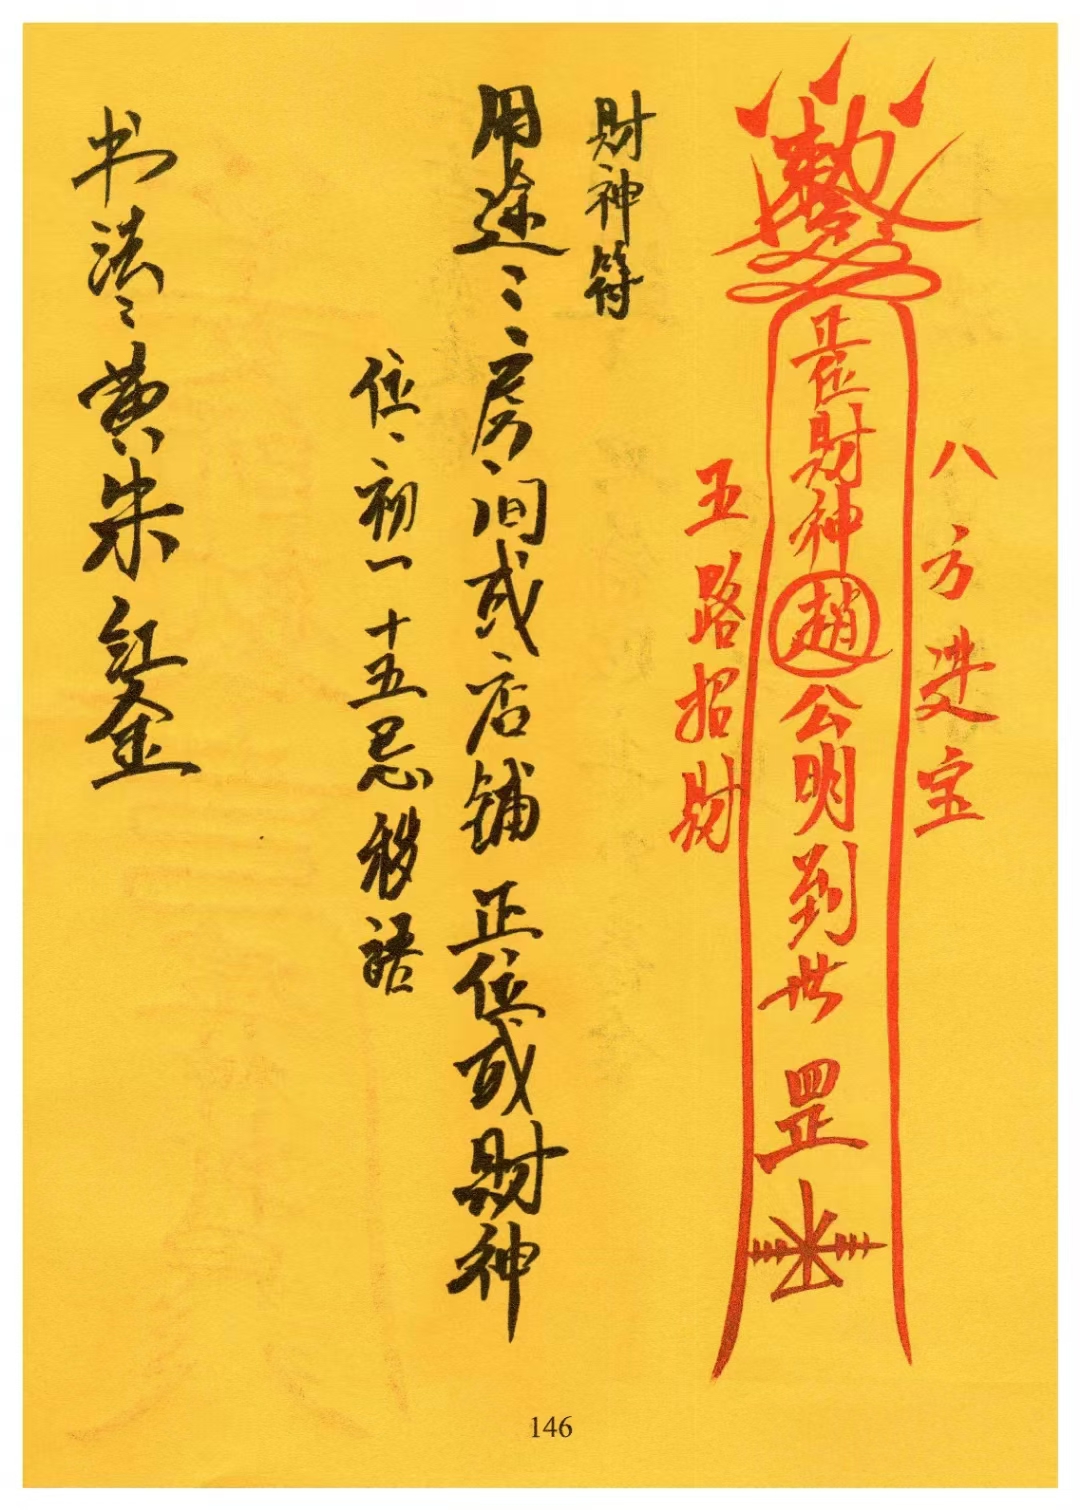 八方进宝
敕令
正位財神趙公明到世罡
五路招財
財神符
用途：房间或店铺正位或財神
位、初一十五忌移語
书法：黄朱紅金
146